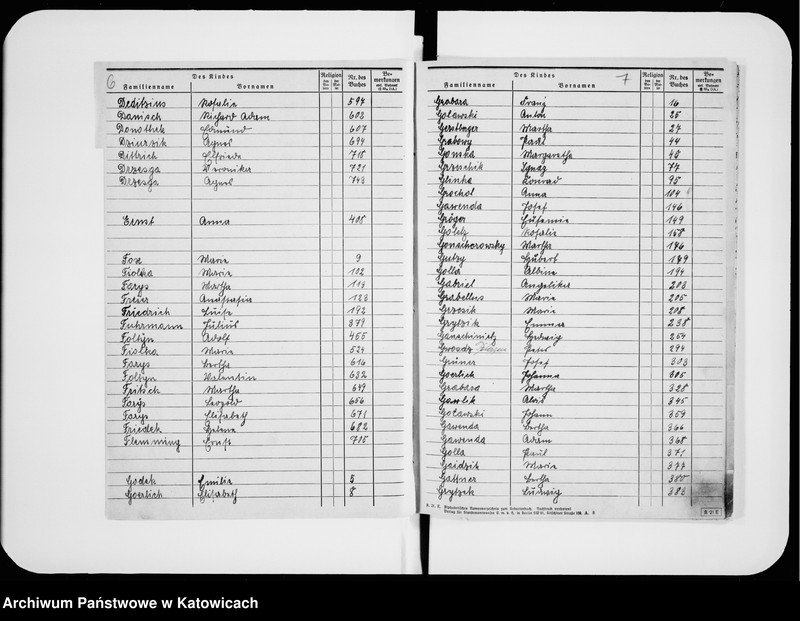 6
Des Kindes
Religion
Nr. des Buches
Be-merkungen
Familienname Vornamen
Deditzius Rosalie 594
Danisch Richard Adam 603
Donothek Edmund 607
Dziurzik Agnes 694
Dittrich Elfriede 718
Drzesga Veronika 721
Drzesga Agnes 743
Ernst Anna 408
Fox Marie 9
Fiolka Marie 102
Farys Martha 113
Freier Anastasia 123
Friedrich Luise 192
Fuhrmann Julius 379
Foltyn Adolf 455
Fiolka Marie 524
Farys Bertha 616
Foltyn Valentin 632
Fritsch Martha 649
Farys Leopold 656
Farys Elisabeth 671
Friedek Helene 682
Flemming Ernst 705
Godek Emilie 5
Goerlich Elisabeth 8
7
Des Kindes
Religion
Nr. des Buches
Be-merkungen
Familienname Vornamen
Grabara Franz 16
Golawski Anton 25
Martha 27
Grabowy Paul 44
Gonska Margarethe 45
Grzeschik Ignaz 77
Glinka Konrad 95
Grochol Anna 104
Gawenda Josef 146
Gröger Eufemie 149
Goletz Rosalie 158
Gonsikorowsky Martha 176
Hubert 179
Golla Albine 194
Gabriel Angelika 203
Grabellus Marie 205
Grzosik Marie 208
Grytzik Emma 238
Hedwig 254
Gwosdz Peter 294
Grüner Josef 303
Goerlich Johanna 305
Grabara Martha 328
Gawlik Alois 345
Golawski Johann 359
Gawenda Bertha 366
Gawenda Adam 368
Golla Paul 371
Gaidzik Marie 377
Gattner Bertha 380
Grytzek Ludwig 383
B 21 E
Archiwum Państwowe w Katowicach